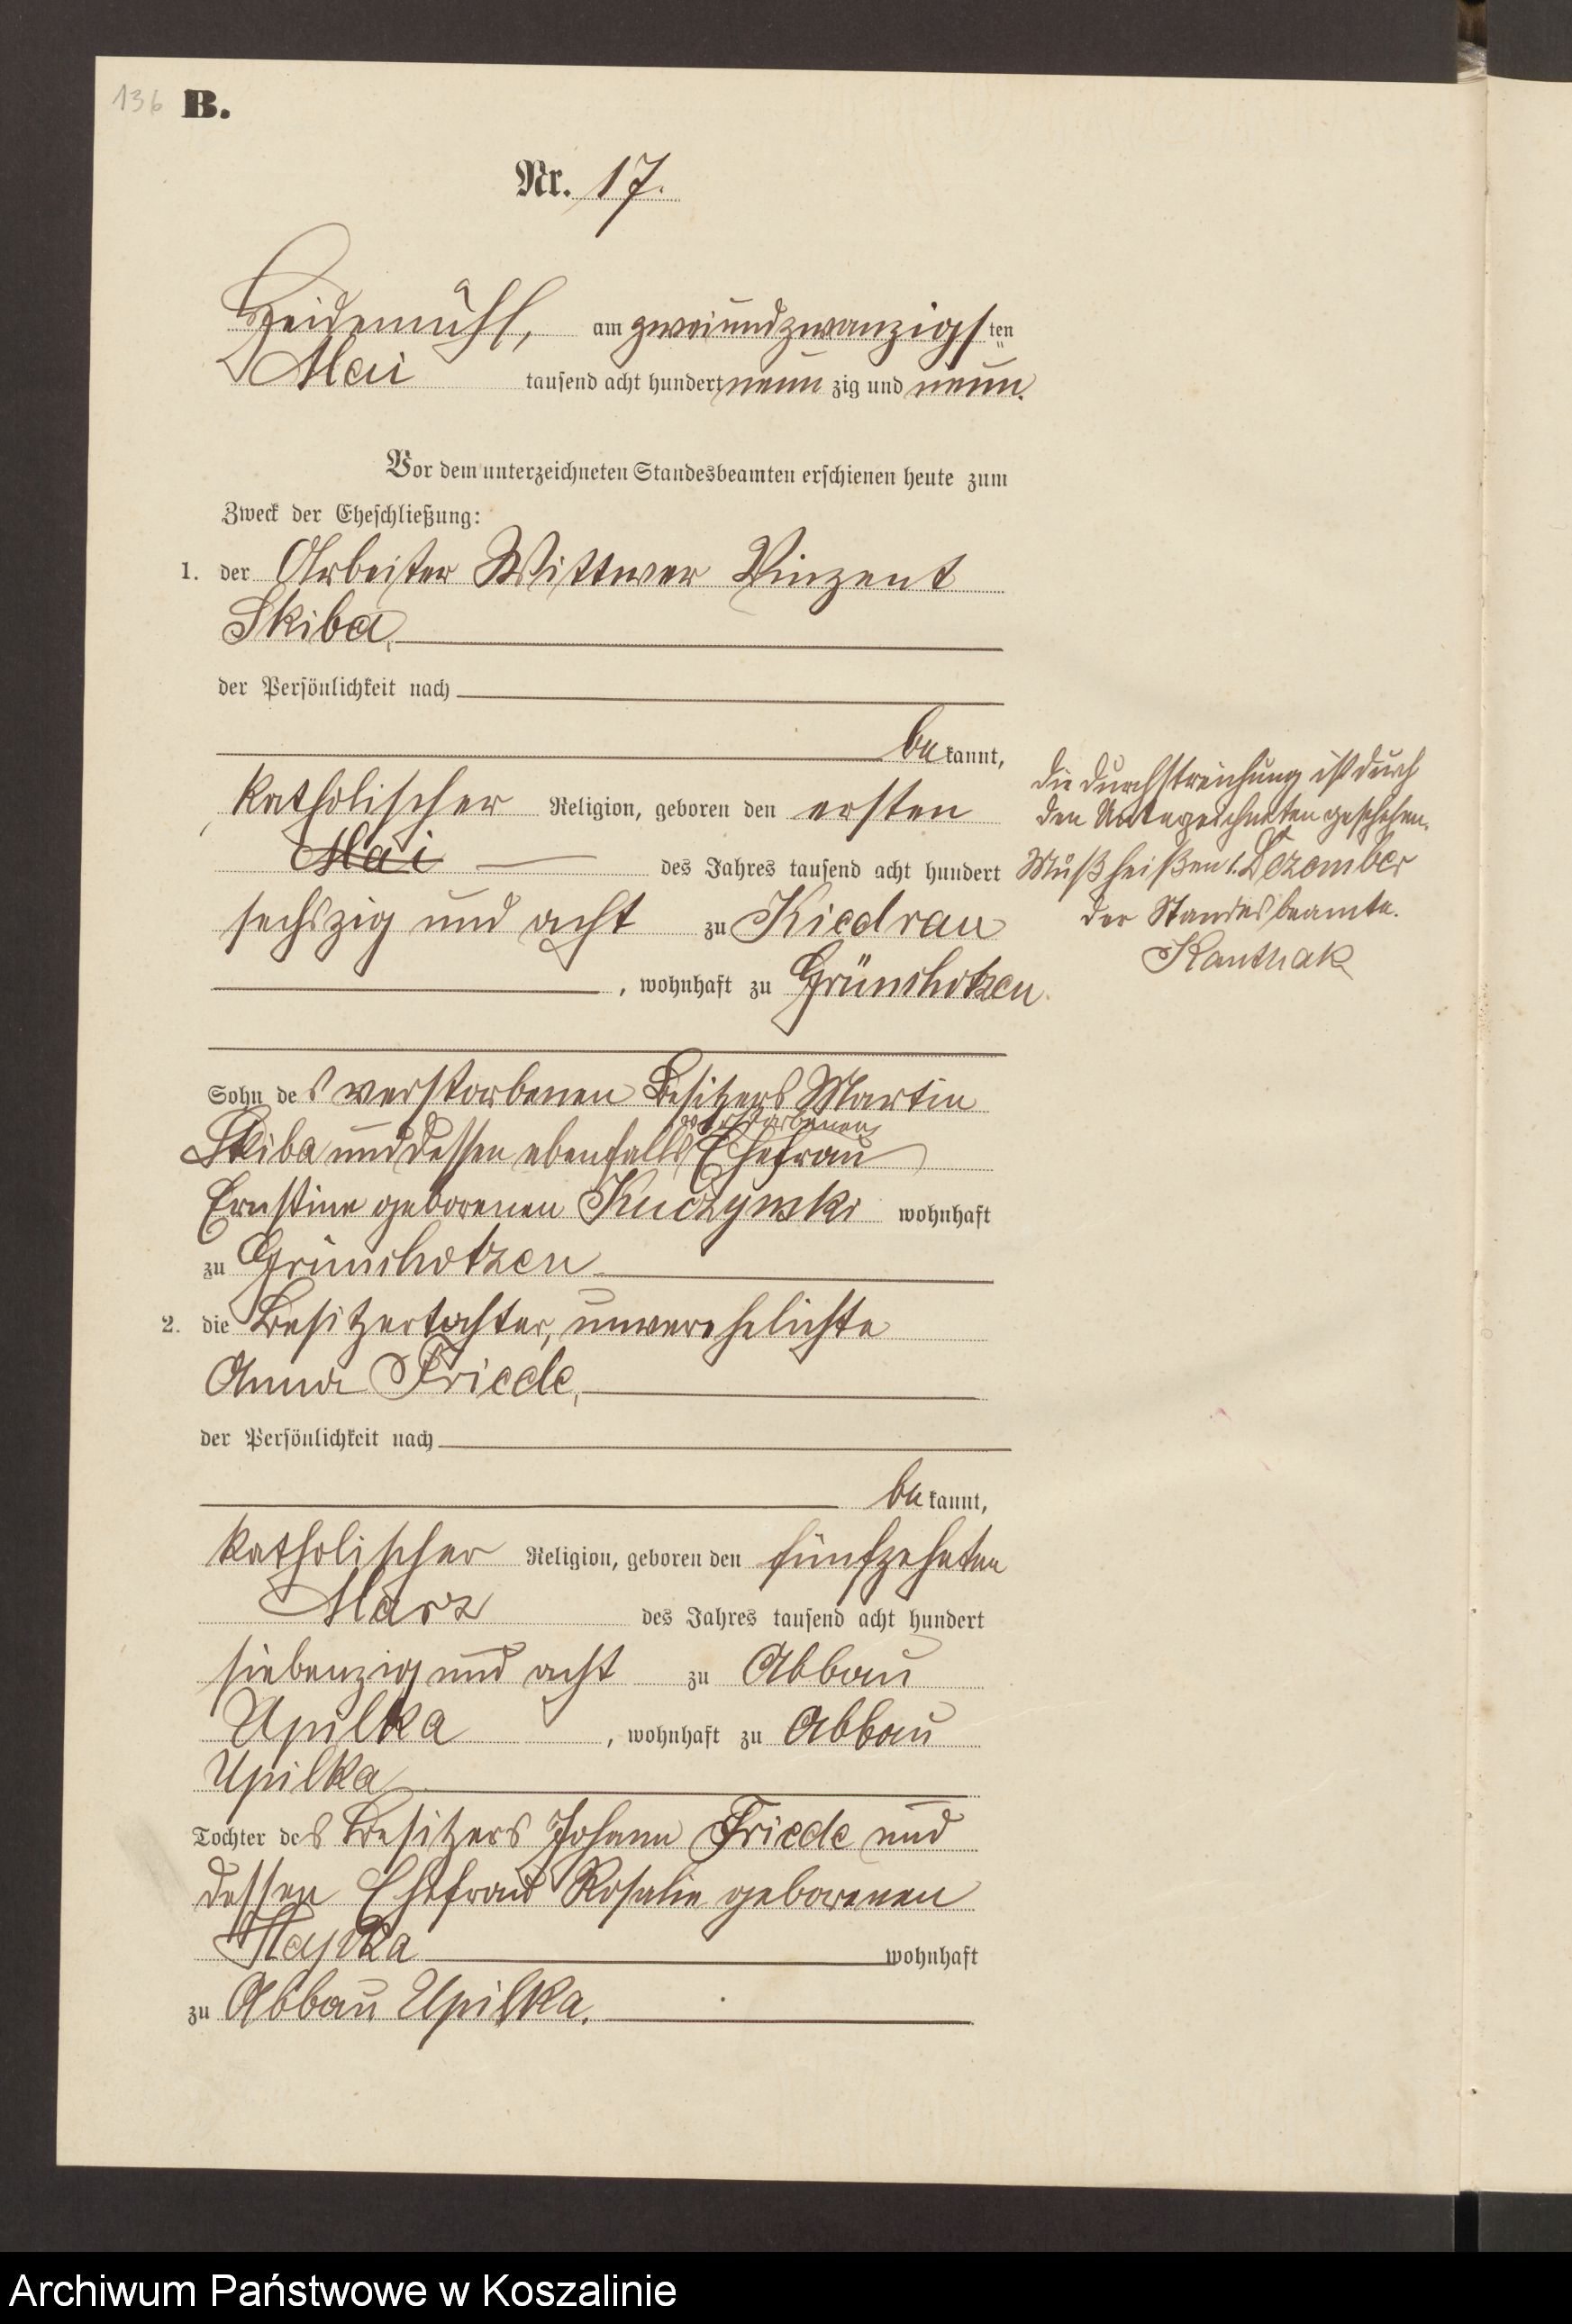 136 B.
Nr. 17.
Heidemühl, am zweiundzwanzigsten
Mai tausend acht hundert neunzig und neun.
Vor dem unterzeichneten Standesbeamten erschienen heute zum
Zweck der Eheschließung:
1. der Arbeiter Wittwer Vinzent
Skiba,
der Persönlichkeit nach
bekannt,
katholischer Religion, geboren den ersten
Mai des Jahres tausend acht hundert
sechszig und acht zu Kiedrau
, wohnhaft zu Grünchotzen
Sohn des verstorbenen Besitzers Martin
verstorbenen
Skiba und dessen ebenfalls Ehefrau
Ernstine geborenen Kuczynski wohnhaft
zu Grünchotzen
2. die Besitzertochter, unverehelichte
Anna Friede,
der Persönlichkeit nach
bekannt,
katholischer Religion, geboren den fünfzehnten
März des Jahres tausend acht hundert
siebenzig und acht zu Abbau
Upilka, wohnhaft zu Abbau
Upilka
Tochter des Besitzers Johann Friede und
dessen Ehefrau Rosalie geborenen
wohnhaft
zu Abbau Upilka.
die Durchstreichung ist durch
den Unterzeichneten geschehen.
Muß heißen 1. Dezember
Der Standesbeamte.
Kanthak
Archiwum Państwowe w Koszalinie